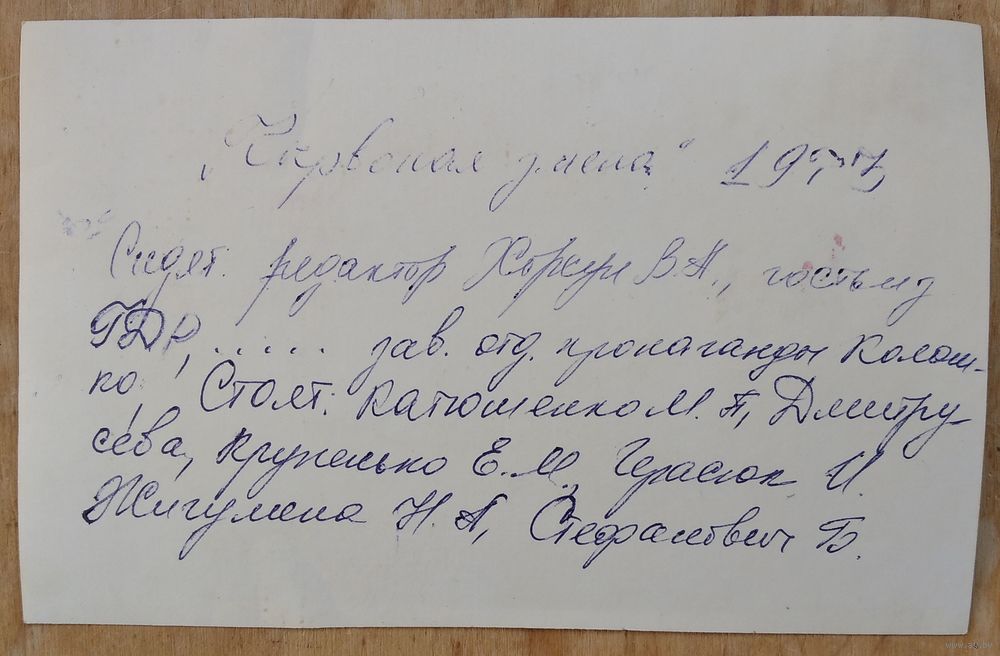 „Чырвоная змена" 1977
Сидят: редактор Хорсун В.А., гость из
ГДР, ..... зав. отд. пропаганды Колош-
ко, Стоят: Катюшенко М. П, Дмитру-
сёва, Крупенько Е.М., Герасюк И.
Жигулина Н.А, Стефанович Б.